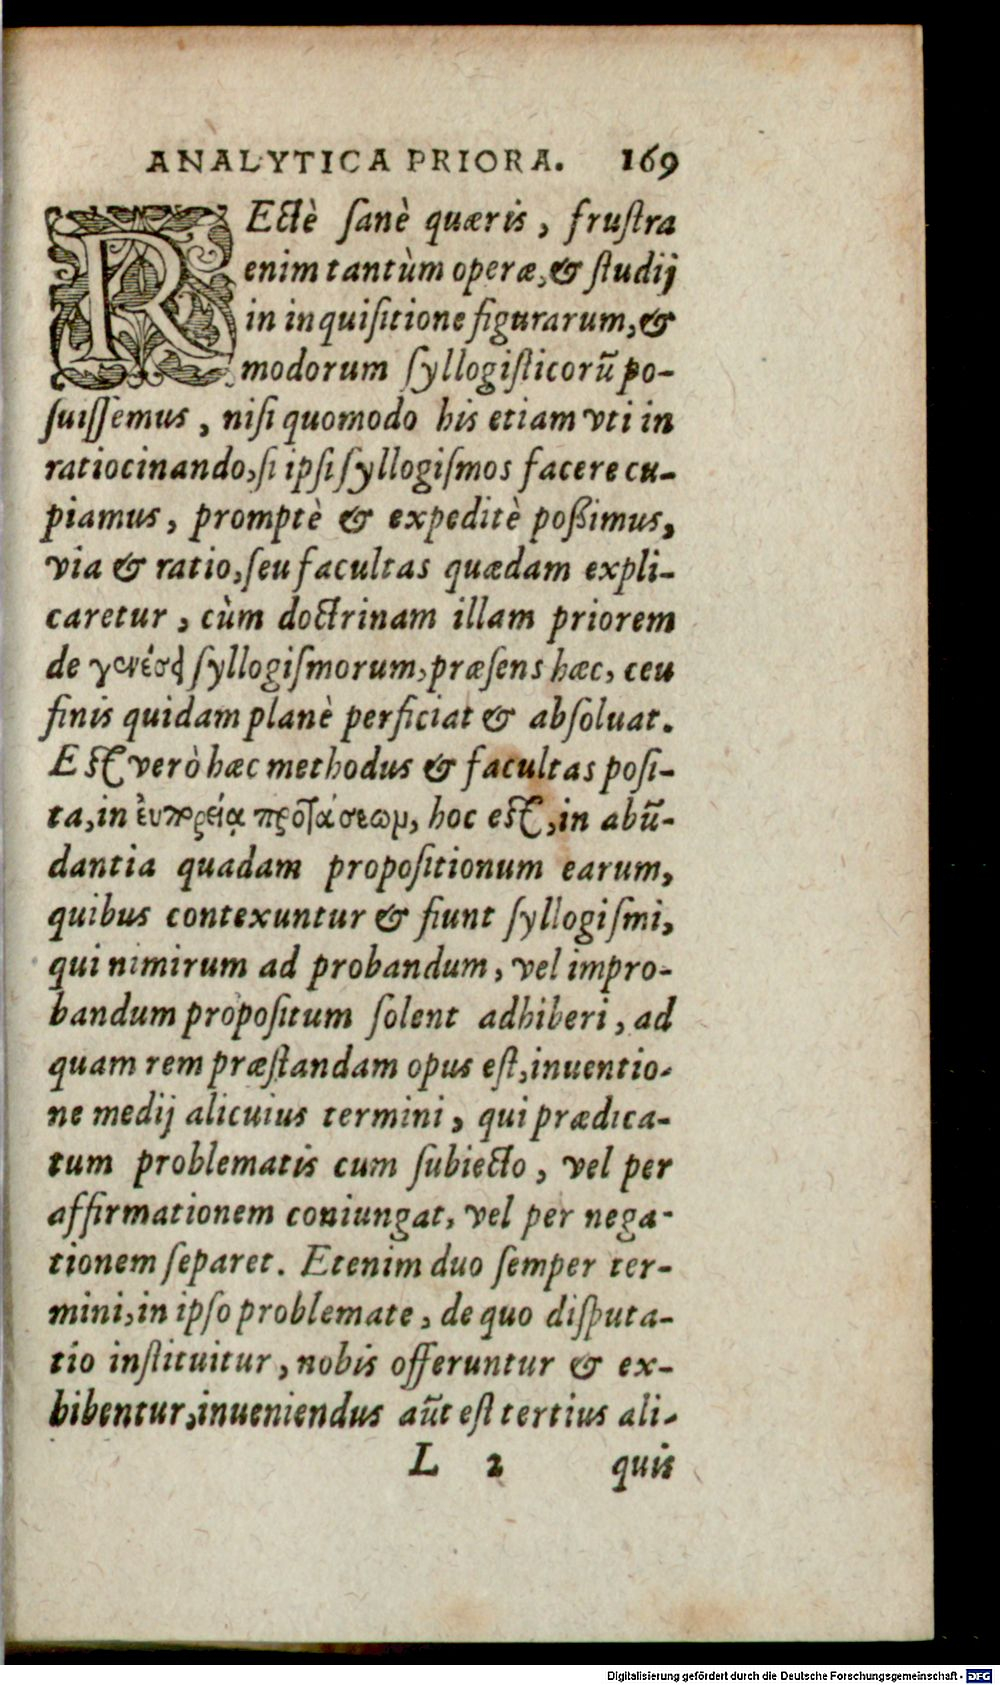 ANALYTICA PRIORA. 169
REctè ſanè quæris, fruſtra
enim tantùm operæ, & ſtudij
in inquiſitione figurarum, &
modorum ſyllogiſticorũ po-
ſuiſſemus, niſi quomodo his etiam vti in
ratiocinando, ſi ipſi ſyllogiſmos facere cu-
piamus, promptè & expeditè poßimus,
via & ratio, ſeu facultas quædam expli-
caretur, cùm doctrinam illam priorem
de γενέσει ſyllogiſmorum, præſens hæc, ceu
finis quidam planè perficiat & abſoluat.
Eſt verò hæc methodus & facultas poſi-
ta, in ἐυπορείᾳ προτάσεωμ, hoc eſt, in abũ-
dantia quadam propoſitionum earum,
quibus contexuntur & fiunt ſyllogiſmi,
qui nimirum ad probandum, vel impro-
bandum propoſitum ſolent adhiberi, ad
quam rem præſtandam opus eſt, inuentio-
ne medij alicuius termini, qui prædica-
tum problematis cum ſubiecto, vel per
affirmationem coniungat, vel per nega-
tionem ſeparet. Etenim duo ſemper ter-
mini, in ipſo problemate, de quo diſputa-
tio inſtituitur, nobis offeruntur & ex-
hibentur, inueniendus aũt eſt tertius ali-
L 2 quis
Digitalisierung gefördert durch die Deutsche Forschungsgemeinschaft - DFG